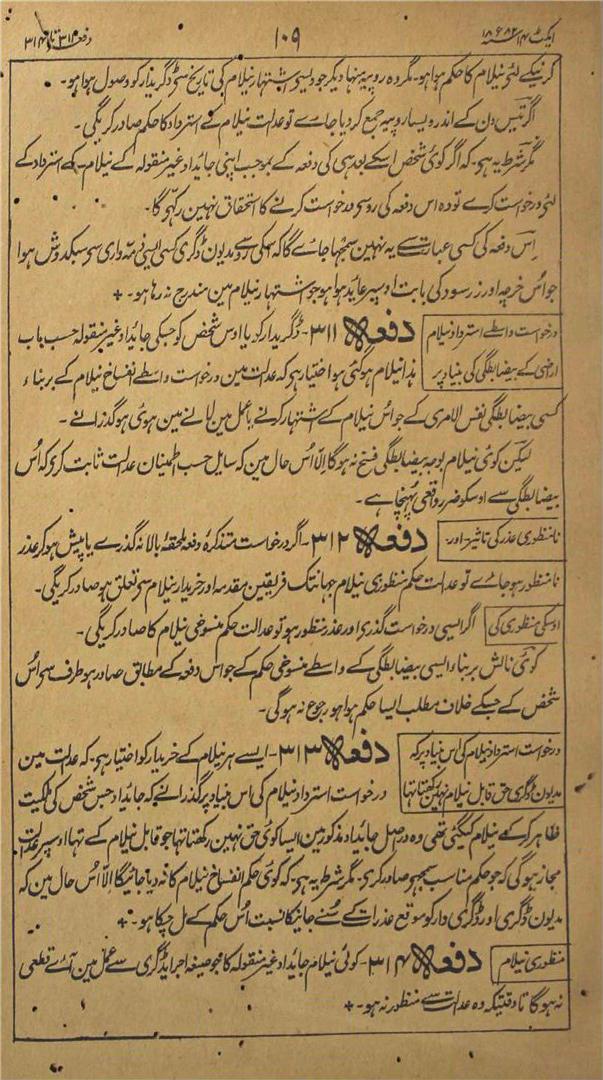 ایکٹ ۱۴ سنہ ۱۸۸۲ ۱۰۹ دفعہ ۳۱۱ تا ۳۱۴
کرنیکے لئے نیلام کا حکم ہوا ہو۔ مگر وہ روپیہ منہا دیکر جو ویسی اشتہار نیلام کی تاریخ سی ڈگریدار کو وصول ہوا ہو۔
اگر تیس دن کے اندر ویسا روپیہ جمع کر دیا جاے تو عدالت نیلام کے استرداد کا حکم صادر کریگی۔
مگر شرط یہ ہی۔ کہ اگر کوئی شخص اسکے بعد ہی کی دفعہ کے بموجب اپنی جائیداد غیر منقولہ کے نیلام کے استرداد کے
لئے درخواست کرے تو وہ اس دفعہ کی روسی درخواست کرنے کا استحقاق نہین رکہی گا۔
اِس دفعہ کی کسی عبارت سے یہ نہین سمجہا جاے گا کہ اسکی رو سے مدیون ڈگری کسی ایسی ذمہ داری سی سبکدوش ہوا
جو اُس خرچہ اور زر سود کی بابت اوسپر عائد ہوا ہو جو اشتہار نیلام مین مندرج نہ رہا ہو۔ +
درخواست واسطے استرداد نیلام
ارضی کے بیضابطگی کی بنیاد پر
دفعہ ۳۱۱۔ ڈگریدار کو یا اوس شخص کو جسکی جائیداد غیر منقولہ حسب باب
ہذا نیلام ہو گئی ہو اختیار ہی کہ عدالت مین درخواست واسطے انفساخ نیلام کے بر بناء
کسی بیضابطگی نفس الامری کے جو اُس نیلام کے اشتہار کرنے یا عمل مین لانے مین ہوئی ہو گذرانے۔
لیکن کوئی نیلام بوجہ بیضابطگی فسخ نہ ہوگا اِلّا اُس حال مین کہ سایل حسب اطمینان عدالت ثابت کری کہ اُس
بیضابطگی سے اوسکو ضرر واقعی پہنچا ہے۔
نامنظوری عذر کی تاثیر۔ اور۔
دفعہ ۳۱۲۔ اگر درخواست متذکرہ دفعہ ملحقہ بالا نہ گذرے یا پیش ہو کر عذر
نامنظور ہو جاے تو عدالت حکم منظوری نیلام جہانتک فریقین مقدمہ اور خریدار نیلام سی تعلق ہو صادر کریگی۔
اوسکی منظوری کی
اگر ایسی درخواست گذری اور عذر منظور ہو تو عدالت حکم منسوخی نیلام کا صادر کریگی۔
کوئی نالش بر بناء ایسی بیضابطگی کے واسطے منسوخی حکم کے جو اس دفعہ کے مطابق صادر ہو طرف سے اُس
شخص کے جسکے خلاف مطلب ایسا حکم ہوا ہو رجوع نہ ہوگی۔
درخواست استرداد نیلام کی اس بنیاد پر کہ
مدیون ڈگری حق قابل نیلام نہین رکہتا تہا
دفعہ ۳۱۳۔ ایسے ہر نیلام کے خریدار کو اختیار ہی۔ کہ عدالت مین
درخواست استرداد نیلام کی اس بنیاد پر گذرانے کہ جائیداد جس شخص کی ملکیت
ظاہر کر کے نیلام کیگئی تھی وہ دراصل جائیداد مذکور مین ایسا کوئی حق نہین رکہتا تہا جو قابل نیلام کے تہا اوسپر عدالت
مجاز ہوگی کہ جو حکم مناسب سمجہی صادر کری۔ مگر شرط یہ ہی۔ کہ کوئی حکم انفساخ نیلام کا نہ دیا جائیگا اِلّا اُس حال مین کہ
مدیون ڈگری اور ڈگری دار کو موقع عذرات کے سُنے جانیکا نسبت اُس حکم کے مل چکا ہو۔ +
منظوری نیلام
دفعہ ۳۱۴۔ کوئی نیلام جائیداد غیر منقولہ کا جو بصیغہ اجرای ڈگری سے عمل مین آے قطعی
نہ ہوگا تا وقتیکہ وہ عدالت سے منظور نہ ہو۔ +